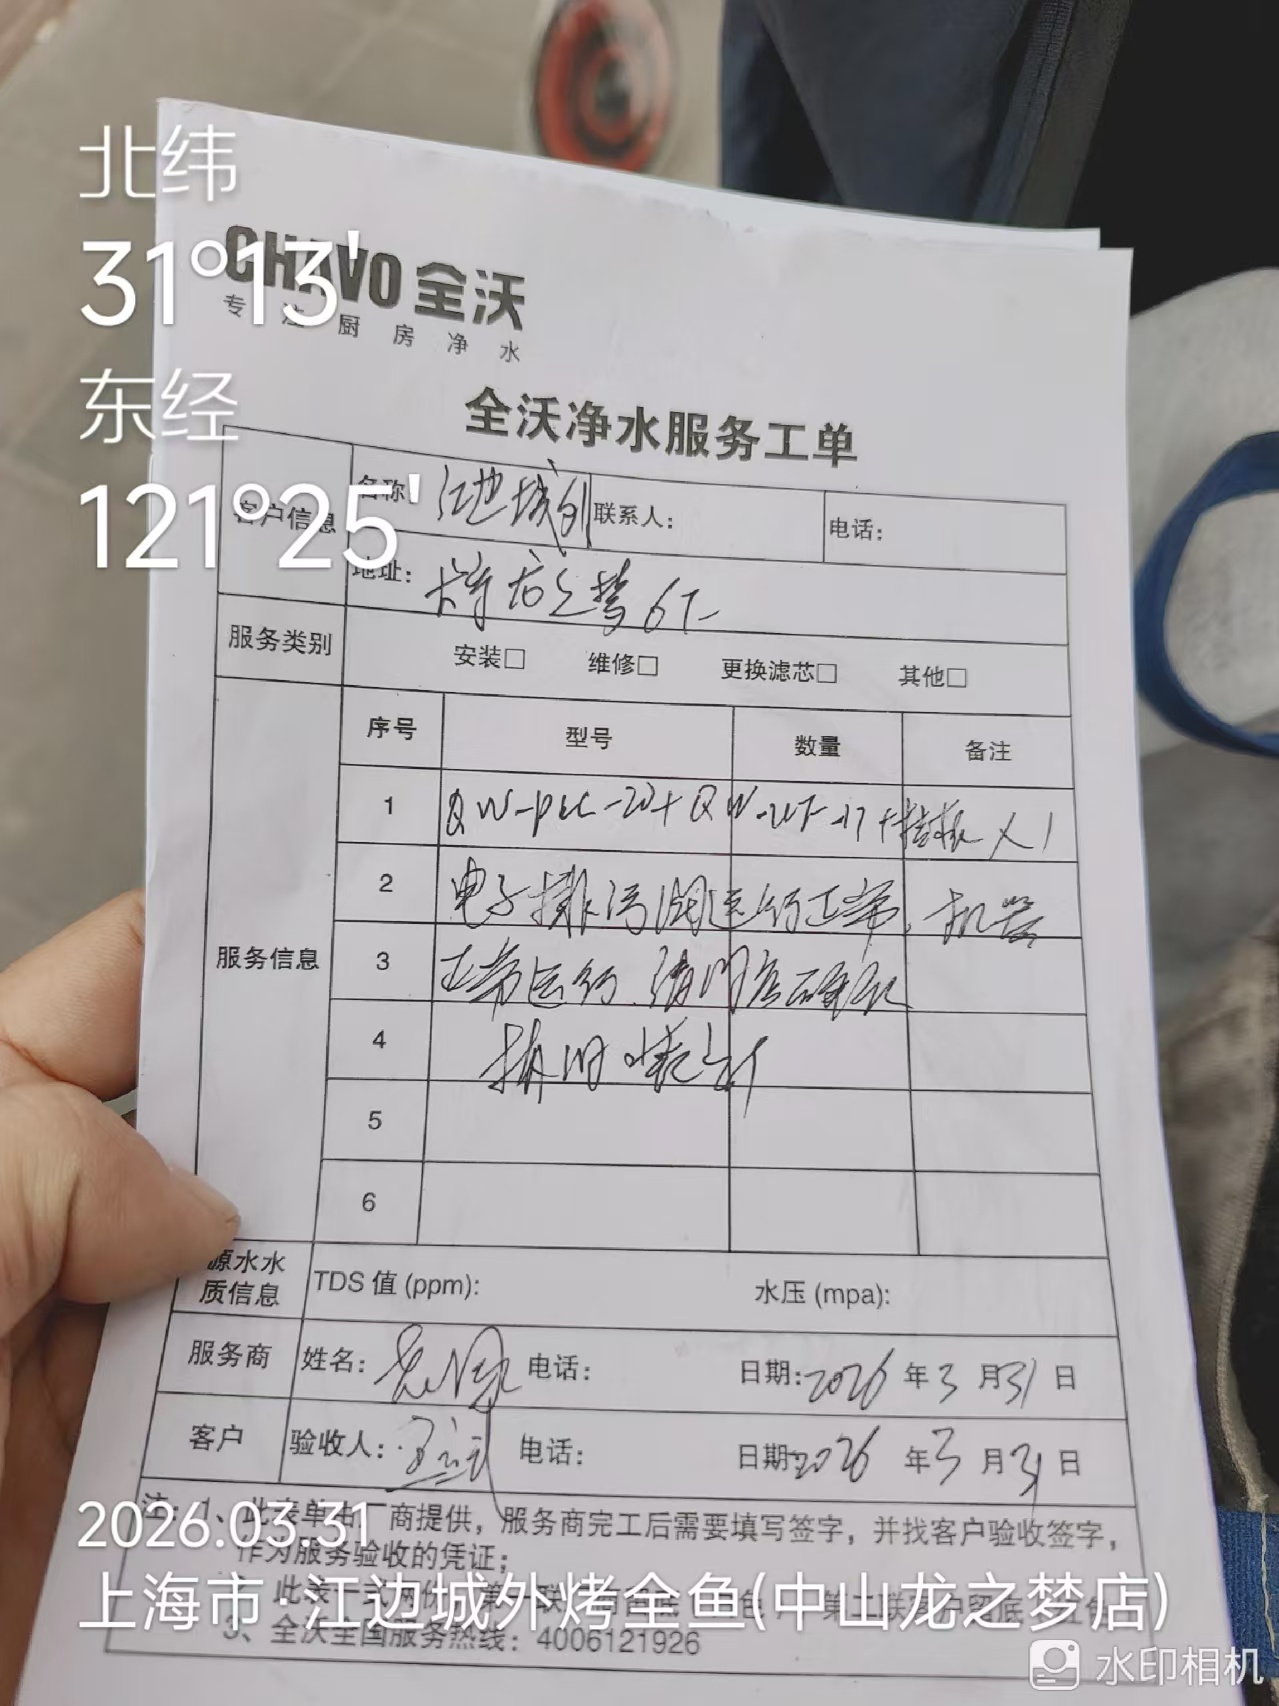 北纬
31°13'
东经
121°25'
CHAVO 全沃
专注厨房净水
全沃净水服务工单
客户信息 名称: 江边城外 联系人: 电话:
地址: 龙之梦6F
服务类别 安装□ 维修□ 更换滤芯□ 其他□
服务信息 序号 型号 数量 备注
1 QW-
2 电子排污阀运行正常,机器
3 正常运行,请门店确认
4
5
6
源水水质信息 TDS 值 (ppm): 水压 (mpa):
服务商 姓名: 电话: 日期: 2026 年 3 月 31 日
客户 验收人: 电话: 日期: 2026 年 3 月 31 日
注: 1、此表单由厂商提供,服务商完工后需要填写签字,并找客户验收签字,
作为服务验收的凭证;
此表一式两份
3、全沃全国服务热线: 4006121926
2026.03.31
上海市·江边城外烤全鱼(中山龙之梦店)
水印相机